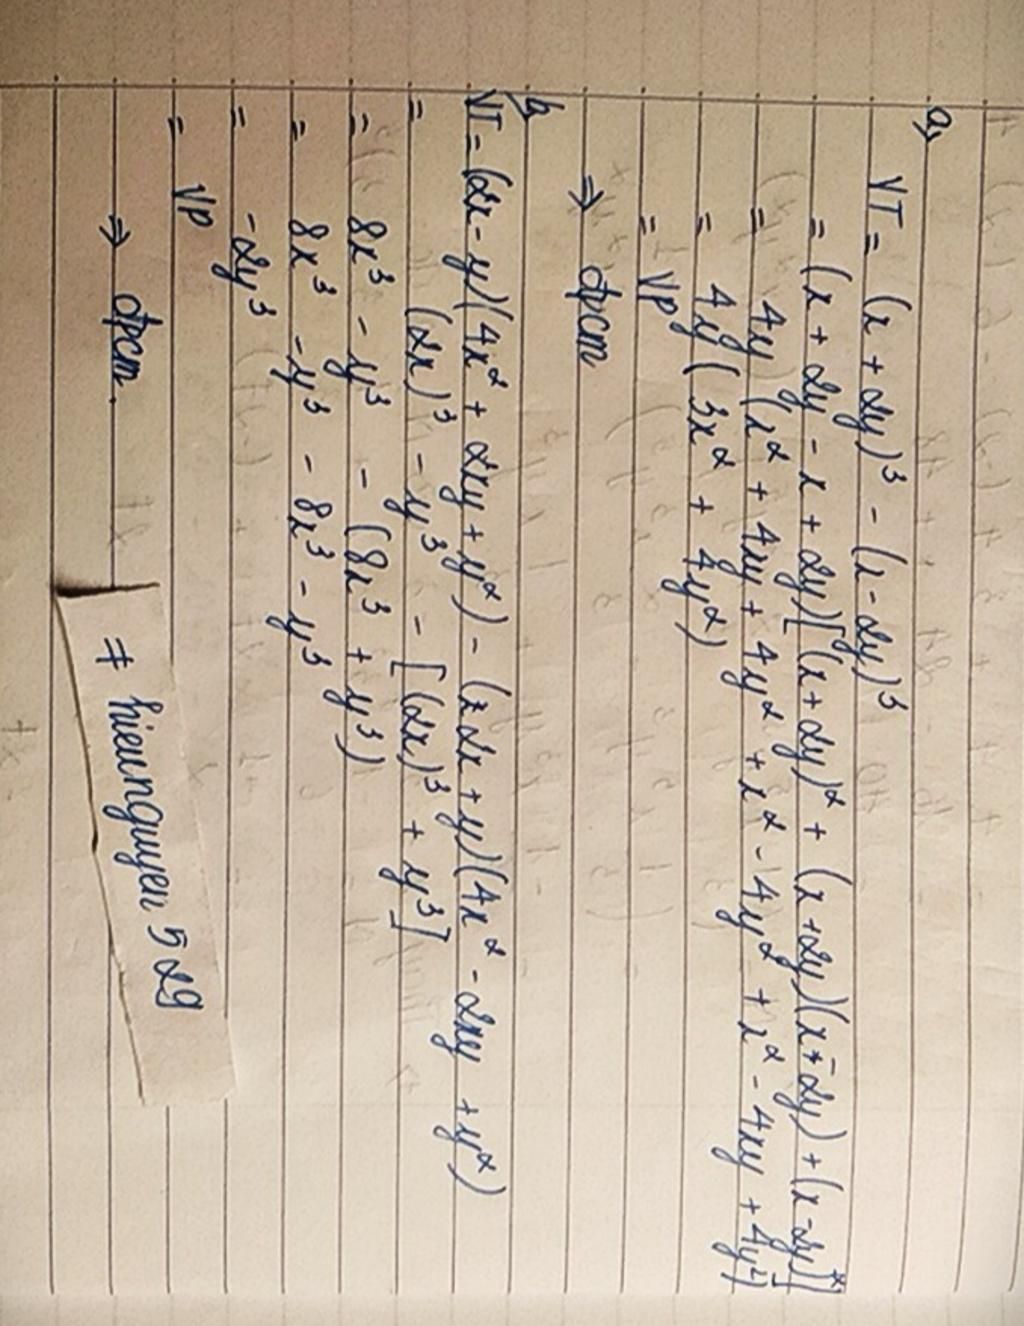 a,
VT = (x + 2y)³ - (x - 2y)³
= (x + 2y - x + 2y)[(x + 2y)² + (x + 2y)(x - 2y) + (x - 2y)²]
= 4y (x² + 4xy + 4y² + x² - 4y² + x² - 4xy + 4y²)
= 4y (3x² + 4y²)
= VP
⇒ đpcm
b,
VT = (2x - y)(4x² + 2xy + y²) - (2x + y)(4x² - 2xy + y²)
= (2x)³ - y³ - [(2x)³ + y³]
= 8x³ - y³ - (8x³ + y³)
= 8x³ - y³ - 8x³ - y³
= -2y³
= VP
⇒ đpcm.
≠ hieunguyen 529